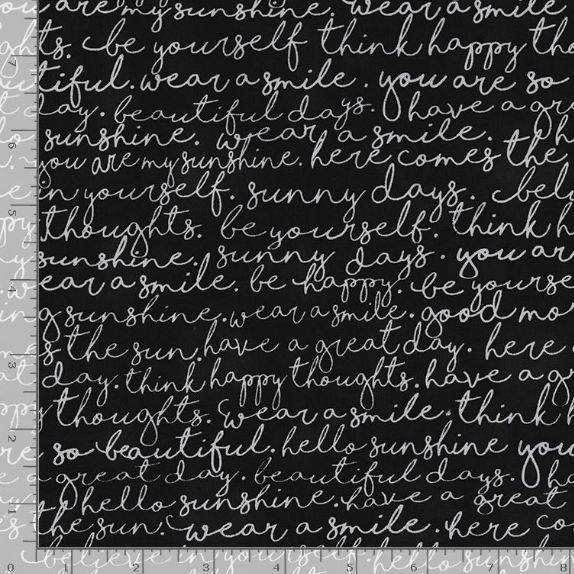 you are my sunshine. wear a smile
ghts. be yourself think happy tho
utiful. wear a smile. you are so
t day. beautiful days. have a gr
lo sunshine. wear a smile. h
. you are my sunshine. here comes the
e in yourself. sunny days. beli
py thoughts. be yourself. think h
y sunshine. sunny days. you are
wear a smile. be happy. be yourse
ng sunshine. wear a smile. good mo
mes the sun. have a great day. here c
at day. think happy thoughts. have a gr
ppy thoughts. wear a smile. think h
re so beautiful. hello sunshine you
e a great day. beautiful days. ha
y hello sunshine. have a great
es the sun. wear a smile. here co
believe in yourself. be yourself. hello sunshin
7
6
5
4
3
2
1
0 1 2 3 4 5 6 7 8